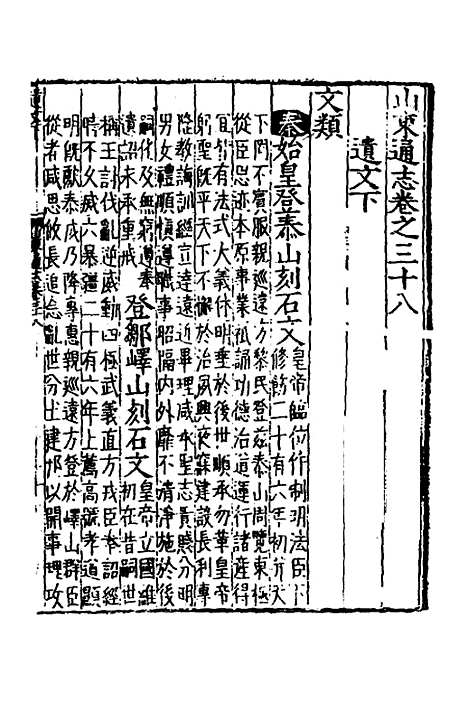 山東通志卷之三十八
遺文下
文類
秦始皇登泰山刻石文
皇帝臨位作制明法臣下
修飭二十有六年初并天
下罔不賓服親巡遠方黎民登茲泰山周覽東極
從臣思迹本原事業祗誦功德治道運行諸產得
宜皆有法式大義休明垂於後世順承勿革皇帝
躬聖既平天下不懈於治夙興夜寐建設長利專
隆教誨訓經宣達遠近畢理咸承聖志貴賤分明
男女禮順慎遵職事昭隔內外靡不清淨施於後
嗣化及無窮遵奉
遺詔永承重戒
登鄒嶧山刻石文
皇帝立國維
初在昔嗣世
稱王討伐亂逆威動四極武義直方戎臣奉詔經
時不久滅六暴彊二十有六年上薦高號孝道顯
明既獻泰成乃降專惠親巡遠方登於嶧山群臣
從者咸思攸長追念亂世分土建邦以開事理攻